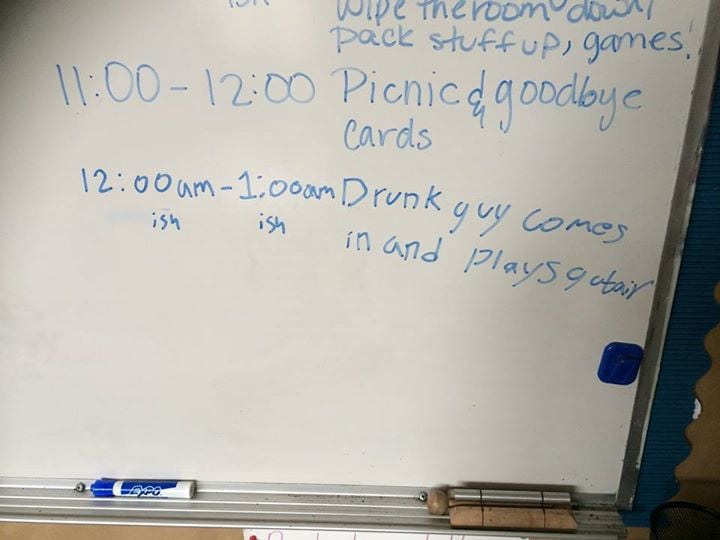 ish
Wipe the room down,
pack stuff up, games!
11:00 - 12:00 Picnic & goodbye
cards
12:00am - 1:00am Drunk guy comes
ish ish in and plays gutair
EXPO